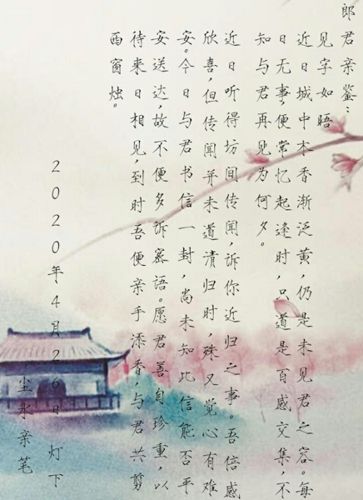 郎君亲鉴：
见字如晤
近日城中木香渐泛黄，仍是未见君之容。每
日无事，便常忆起逢时，只道是百感交集，不
知与君再见为何夕。
近日听得坊间传闻，诉你近归之事。吾倍感
欣喜，但传闻并未道清归时，殊又觉心有难
安。今日与君书信一封，尚未知此信能否平
安送达，故不便多诉密语。愿君善自珍重，以
待来日相见，到时吾便亲手添香，与君共剪
西窗烛。
2020年4月26日灯下
尘水亲笔